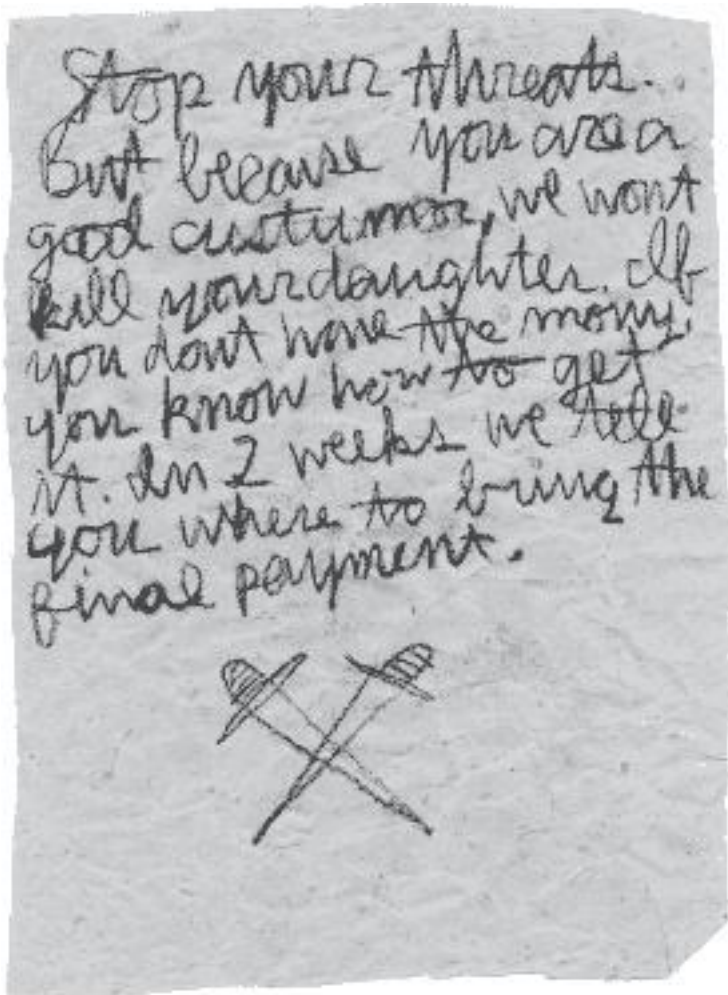 Stop your threats.
But because you are a
good custumor, we wont
kill your daughter. If
you dont have the mony,
you know how to get
it. In 2 weeks we tell
you where to bring the
final payment.